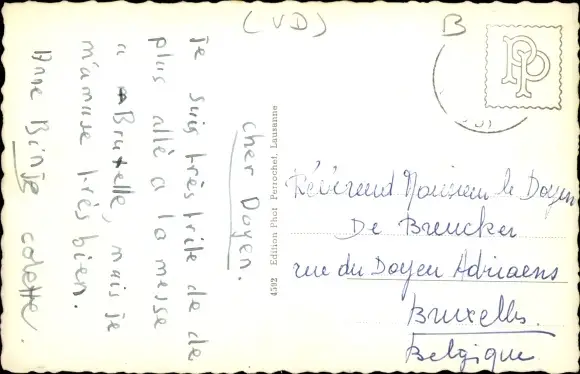 (VD)
B
PP
cher Doyen.
Je suis très trite de de
plus allé a la messe
a Bruxelle, mais je
m'amuse très bien.
Anne Binje colette.
4592 Edition Phot Perrochet, Lausanne
Révérend Monsieur le Doyen
De Breucker
rue du Doyen Adriaens
Bruxelles.
Belgique